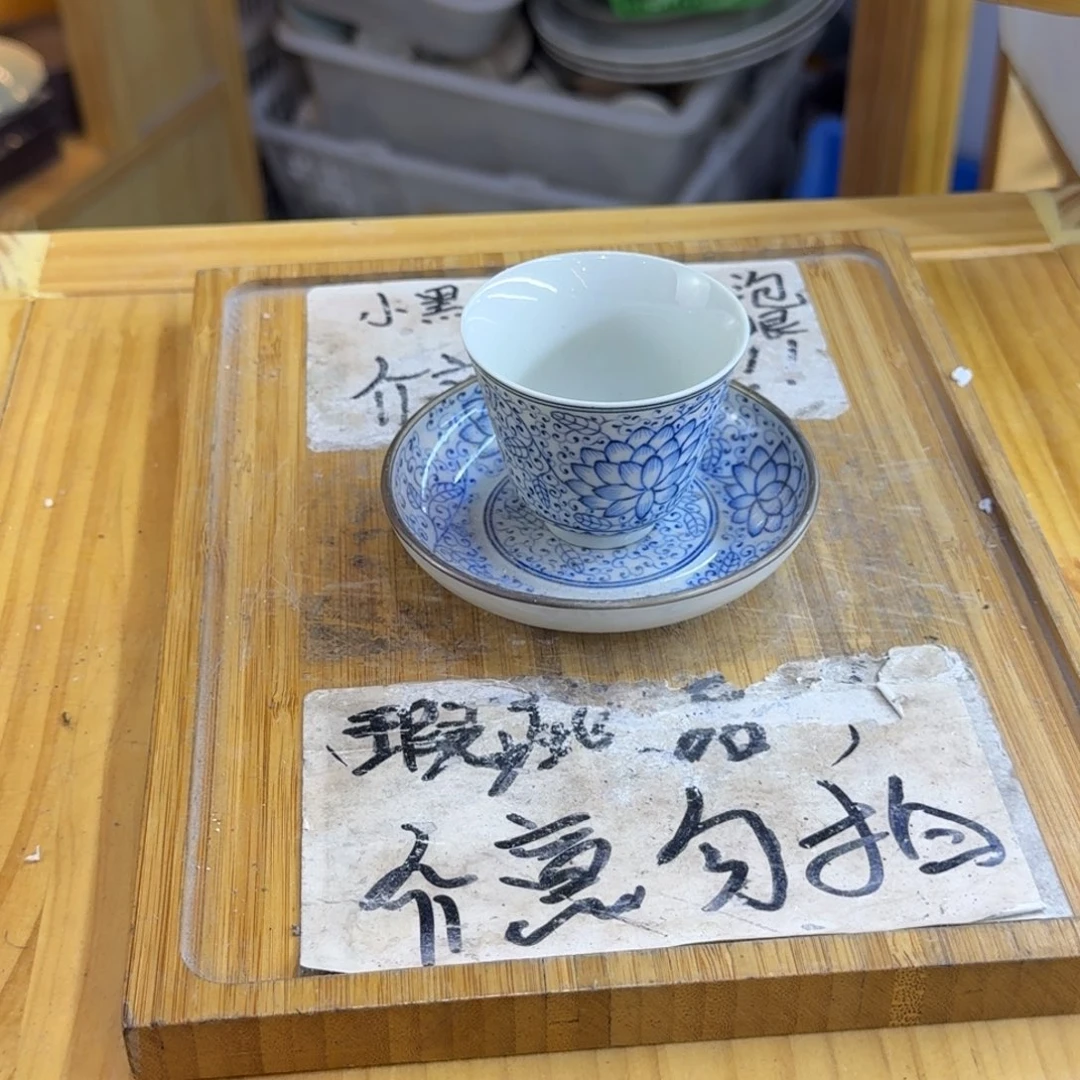 小黑 泡
介 痕!!
瑕疵品,
介意勿拍